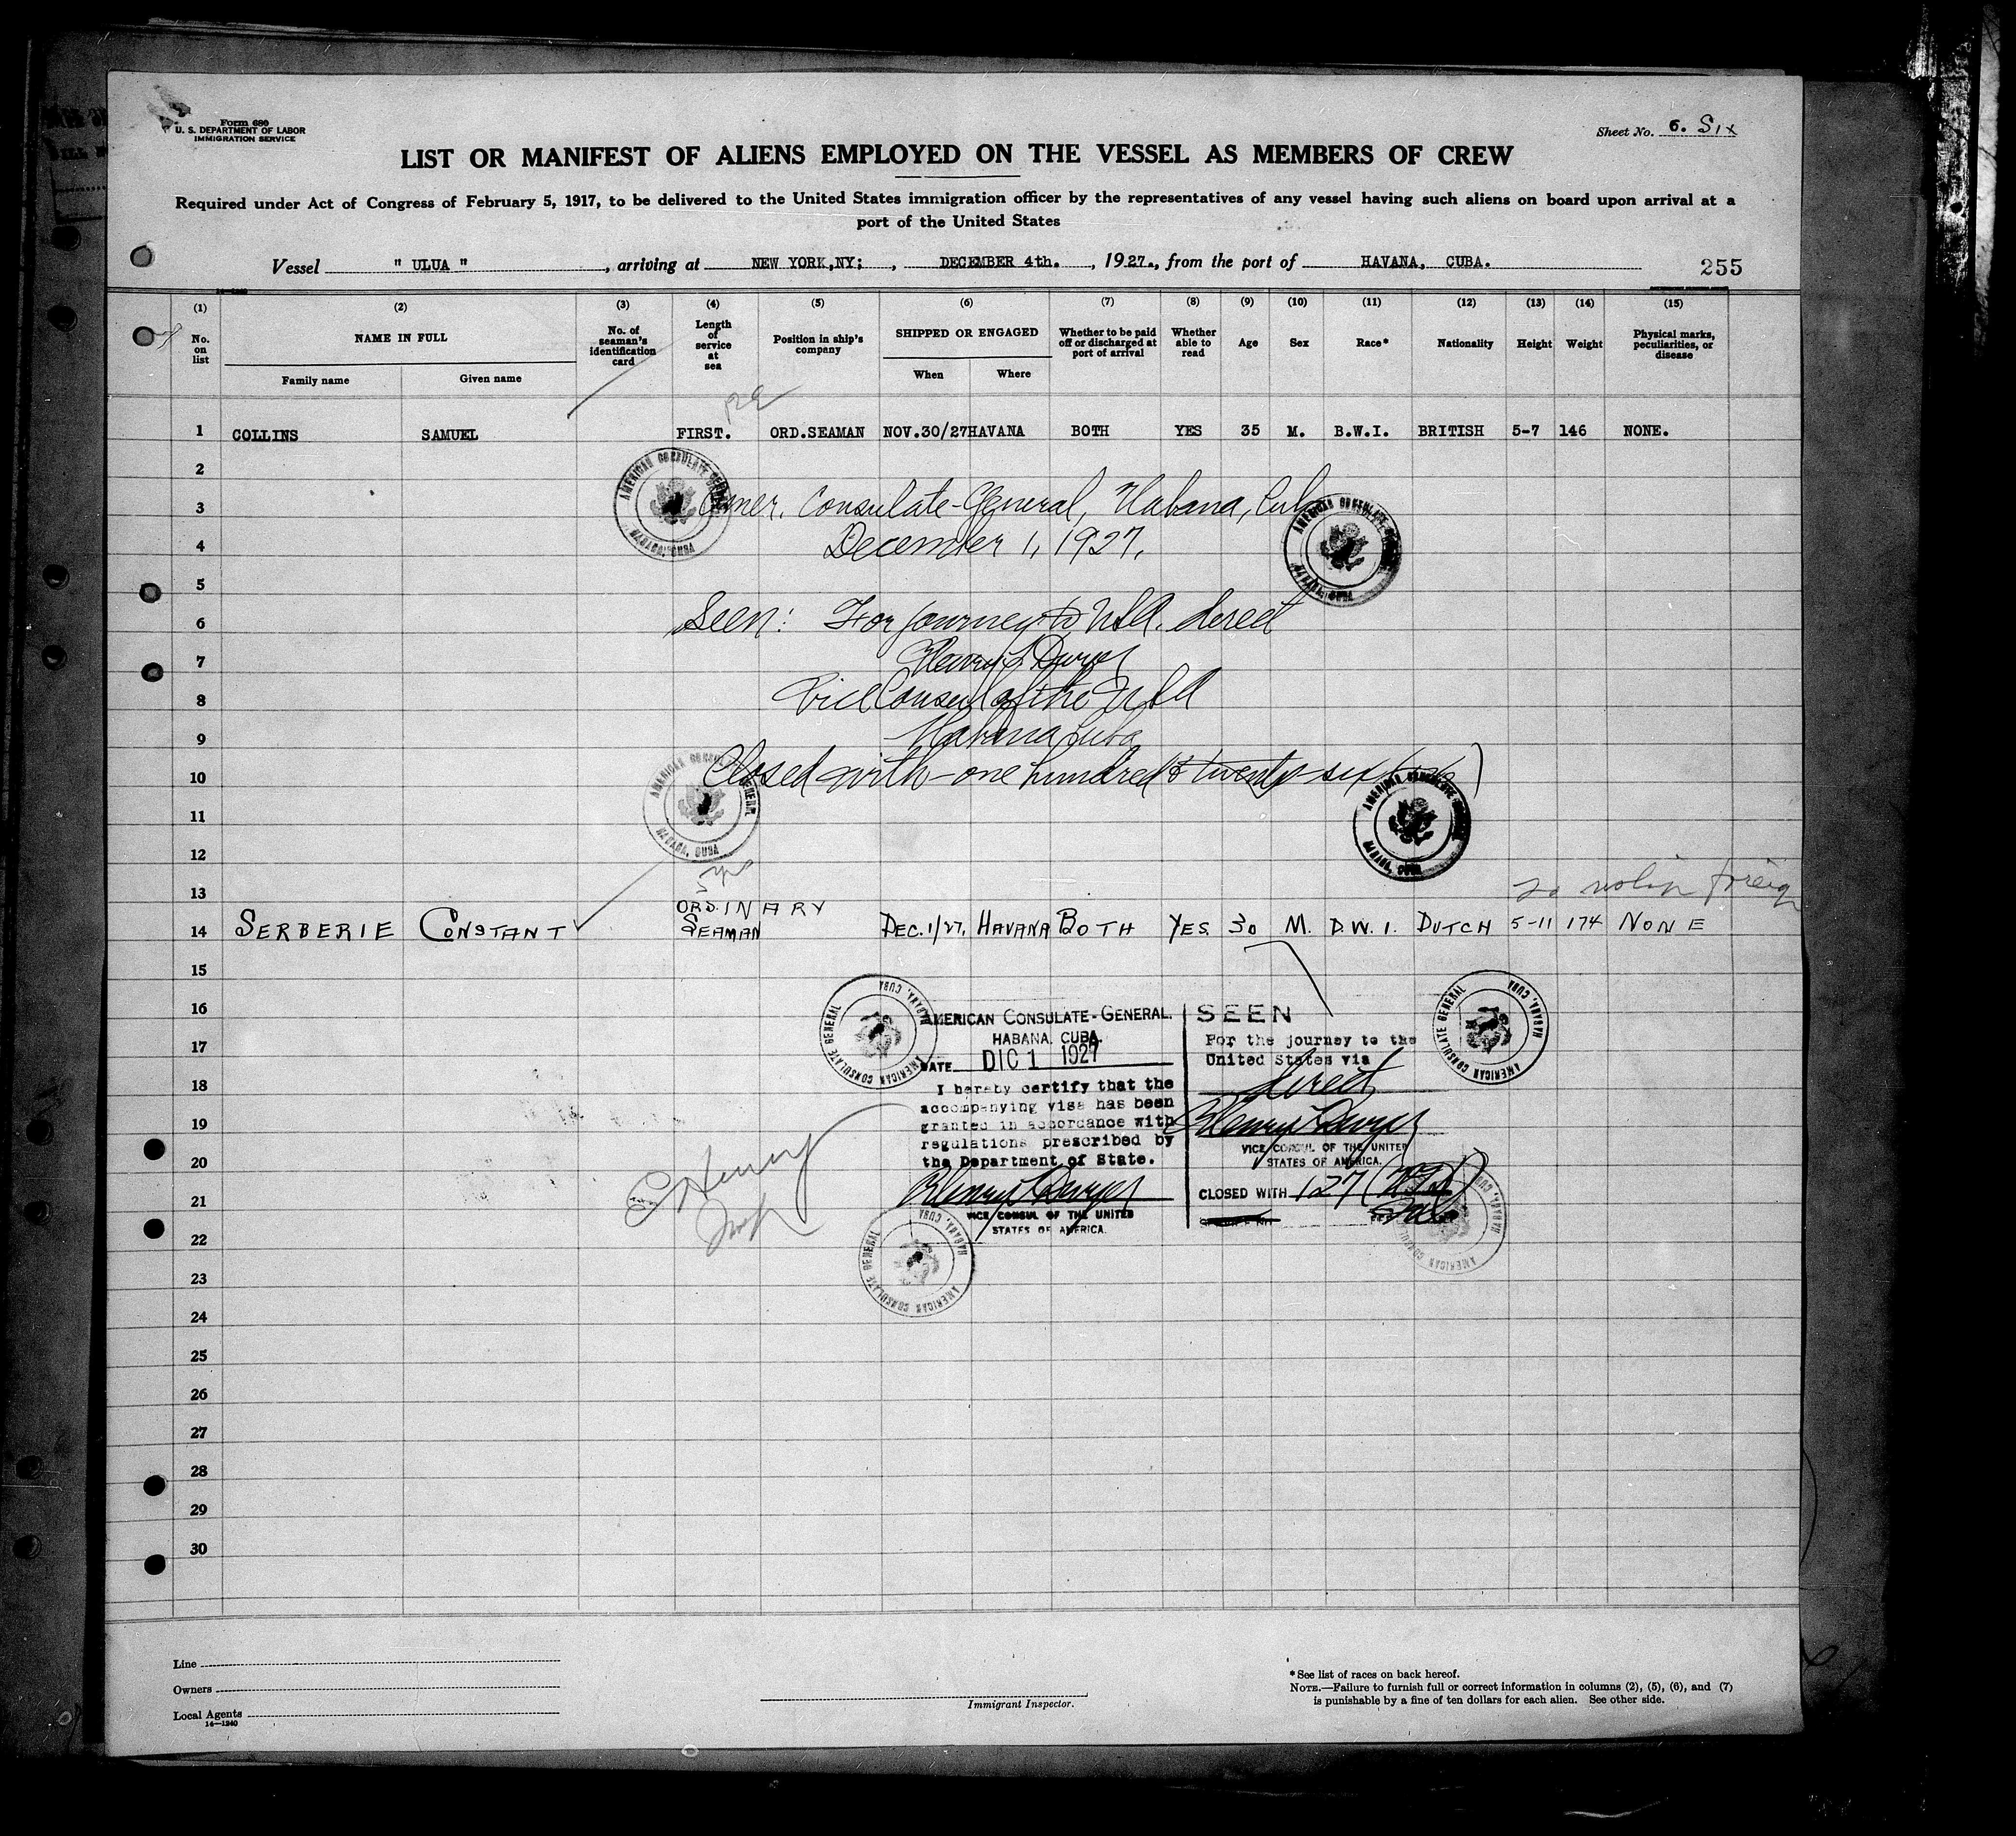 Form 680
U. S. DEPARTMENT OF LABOR
IMMIGRATION SERVICE
Sheet No. 6. Six
LIST OR MANIFEST OF ALIENS EMPLOYED ON THE VESSEL AS MEMBERS OF CREW
Required under Act of Congress of February 5, 1917, to be delivered to the United States immigration officer by the representatives of any vessel having such aliens on board upon arrival at a
port of the United States
Vessel " ULUA " , arriving at NEW YORK,NY; , DECEMBER 4th. , 1927., from the port of HAVANA, CUBA.
255
(1) (2) (3) (4) (5) (6) (7) (8) (9) (10) (11) (12) (13) (14) (15)
No. on list NAME IN FULL Family name Given name No. of seaman's identification card Length of service at sea Position in ship's company SHIPPED OR ENGAGED When Where Whether to be paid off or discharged at port of arrival Whether able to read Age Sex Race* Nationality Height Weight Physical marks, peculiarities, or disease
1 COLLINS SAMUEL FIRST. ORD.SEAMAN NOV.30/27 HAVANA BOTH YES 35 M. B.W.I. BRITISH 5-7 146 NONE.
2
AMERICAN CONSULATE GENERAL HABANA, CUBA
3 Amer. Consulate-General, Habana, Cuba
AMERICAN CONSULATE GENERAL HABANA, CUBA
4 December 1, 1927.
5
6 Seen: For journey to USA. direct
7
8 Vice Consul of the USA
9 Habana Cuba
10 Closed with one hundred & twenty six (126)
AMERICAN CONSULATE GENERAL HABANA, CUBA
AMERICAN CONSULATE GENERAL HABANA, CUBA
11
12
13
14 SERBERIE CONSTANT ORDINARY SEAMAN DEC.1/27, HAVANA BOTH YES. 30 M. D.W.I. DUTCH 5-11 174 NONE
15
16
AMERICAN CONSULATE GENERAL HABANA, CUBA
AMERICAN CONSULATE-GENERAL.
HABANA, CUBA.
DATE DIC 1 1927
I hereby certify that the
accompanying visa has been
granted in accordance with
regulations prescribed by
the Department of State.
VICE CONSUL OF THE UNITED
STATES OF AMERICA.
SEEN
For the journey to the
United States via
direct
VICE CONSUL OF THE UNITED
STATES OF AMERICA.
CLOSED WITH 127
AMERICAN CONSULATE GENERAL HABANA, CUBA
AMERICAN CONSULATE GENERAL HABANA, CUBA
AMERICAN CONSULATE GENERAL HABANA, CUBA
17
18
19
20
21
22
23
24
25
26
27
28
29
30
Line
Owners
Local Agents
14—1240
Immigrant Inspector.
* See list of races on back hereof.
NOTE.—Failure to furnish full or correct information in columns (2), (5), (6), and (7)
is punishable by a fine of ten dollars for each alien. See other side.